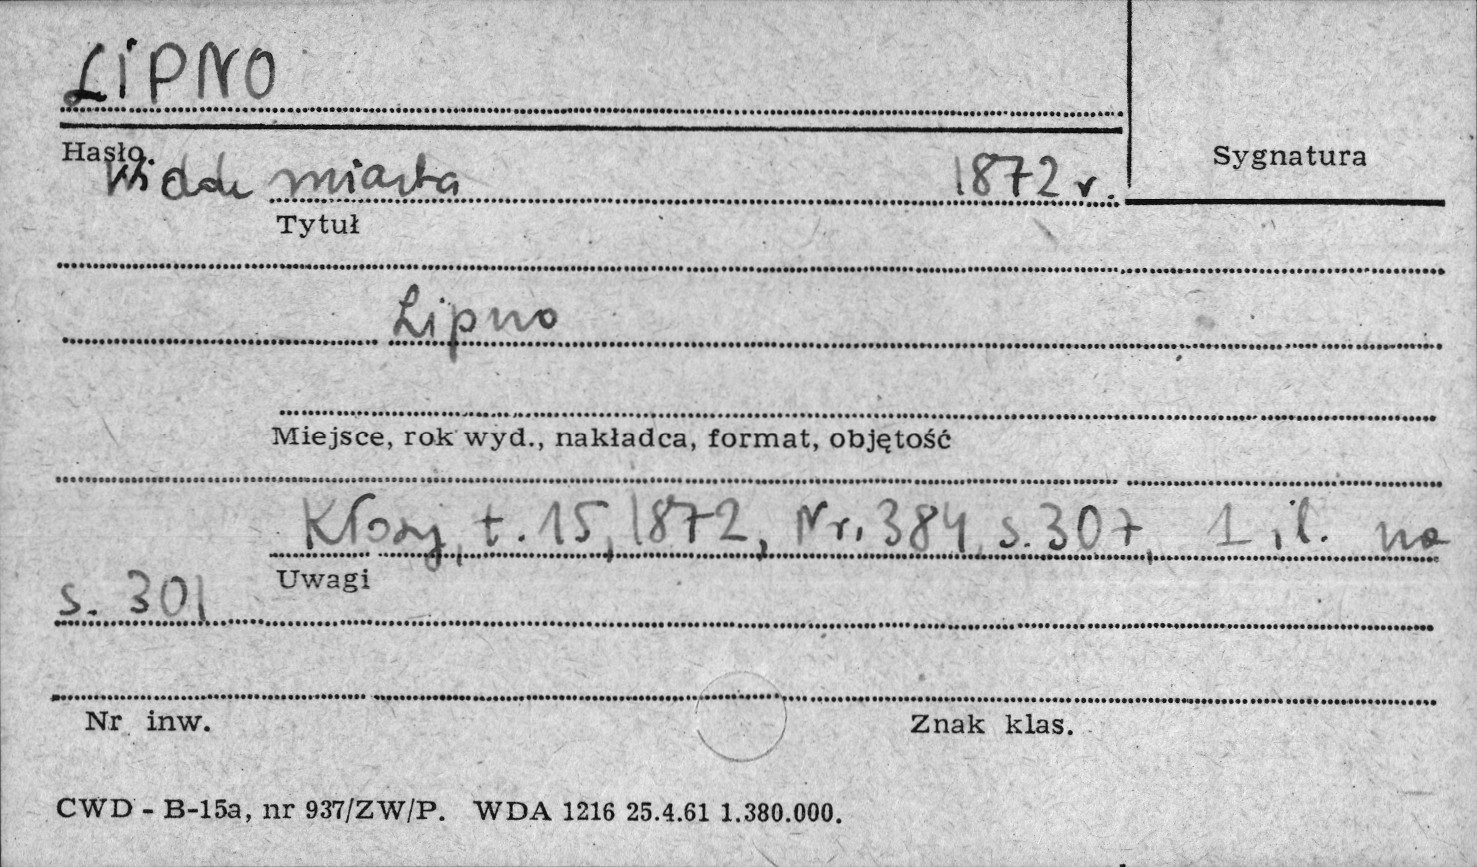 LIPNO
Hasło.
Widok miasta 1872 r.
Sygnatura
Tytuł
Lipno
Miejsce, rok wyd., nakładca, format, objętość
Kłosy, t. 15, 1872, Nr. 384, s. 307, 1 il. na
Uwagi
s. 301
Nr inw. Znak klas.
CWD - B-15a, nr 937/ZW/P. WDA 1216 25.4.61 1.380.000.